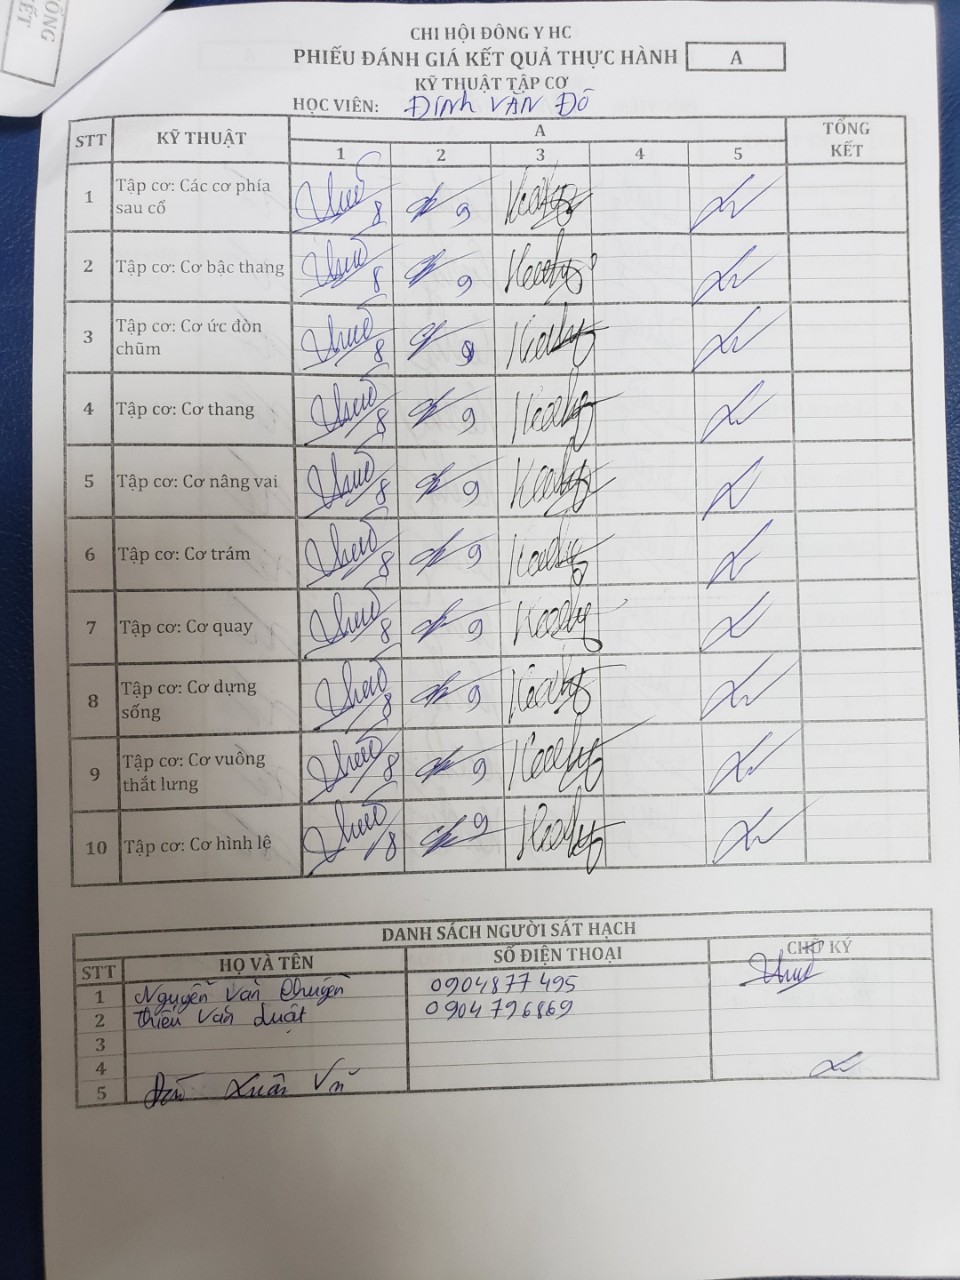 ỐNG
KẾT
CHI HỘI ĐÔNG Y HC
PHIẾU ĐÁNH GIÁ KẾT QUẢ THỰC HÀNH A
KỸ THUẬT TẬP CƠ
HỌC VIÊN: ĐINH VĂN ĐÔ
STT KỸ THUẬT A TỔNG KẾT
1 2 3 4 5
1 Tập cơ: Các cơ phía sau cổ 8 9
2 Tập cơ: Cơ bậc thang 8 9
3 Tập cơ: Cơ ức đòn chũm 8 9
4 Tập cơ: Cơ thang 8 9
5 Tập cơ: Cơ nâng vai 8 9
6 Tập cơ: Cơ trám 8 9
7 Tập cơ: Cơ quay 8 9
8 Tập cơ: Cơ dựng sống 8 9
9 Tập cơ: Cơ vuông thắt lưng 8 9
10 Tập cơ: Cơ hình lê 8 9
DANH SÁCH NGƯỜI SÁT HẠCH
STT HỌ VÀ TÊN SỐ ĐIỆN THOẠI CHỮ KÝ
1 Nguyễn Văn Chuyên 0904877495
2 Thiều Văn Luật 0904796869
3
4
5 Xuân